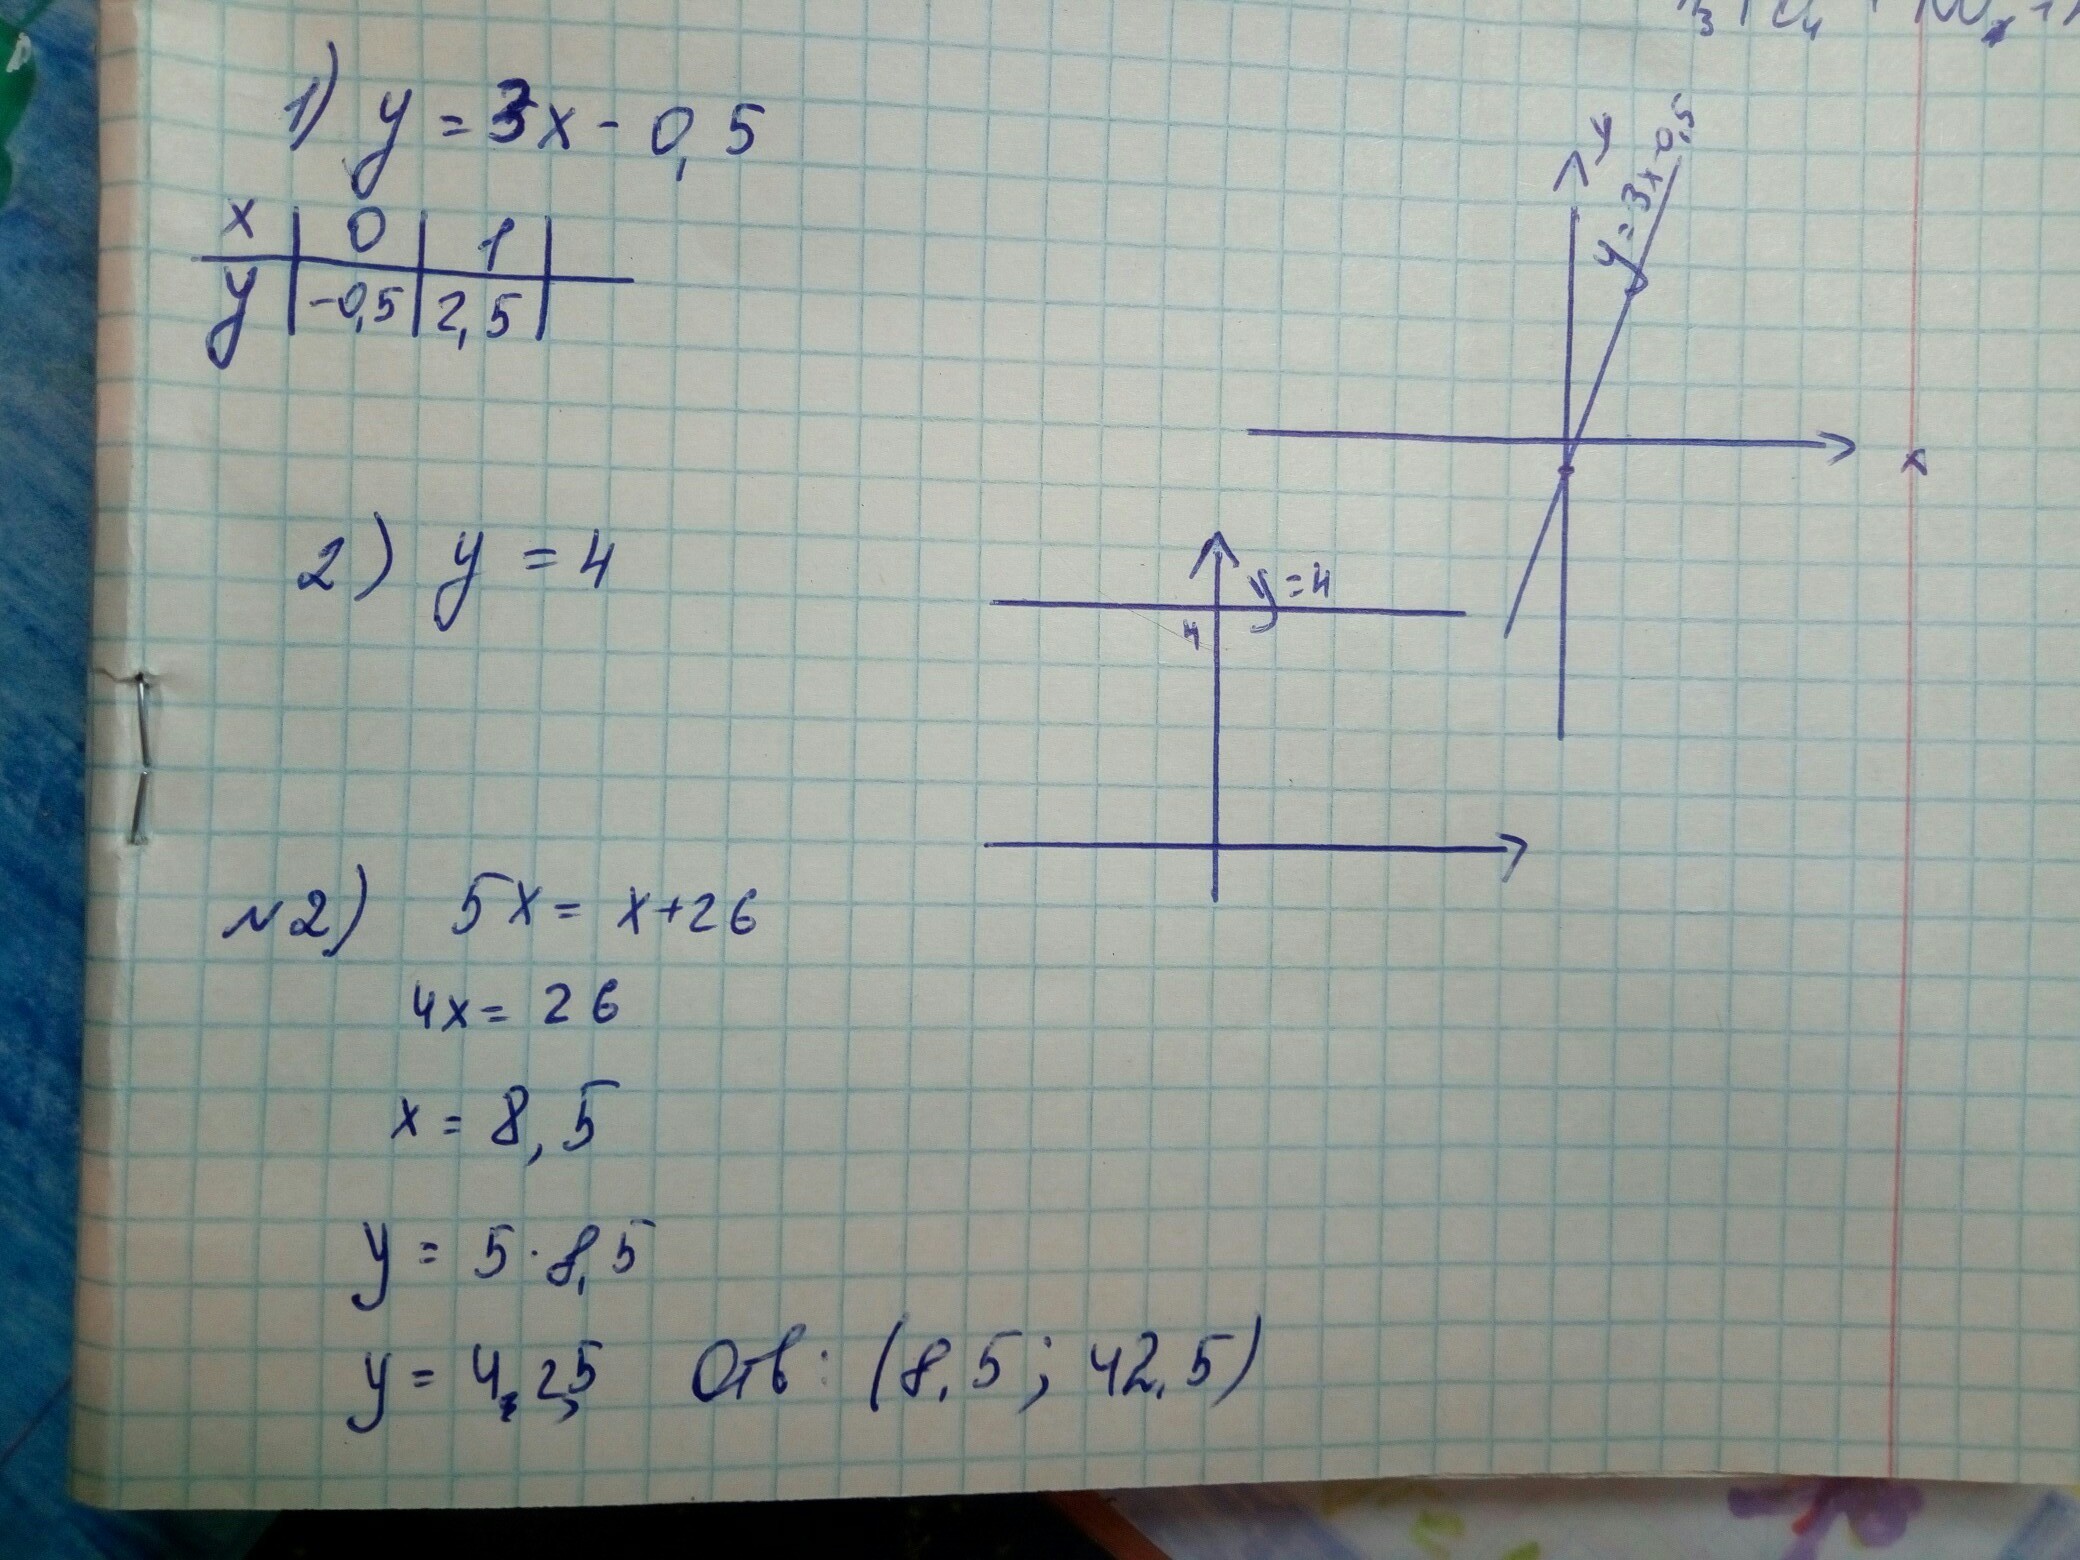 1) y = 3x - 0,5
x | 0 | 1 |
y | -0,5 | 2,5 |
y
y = 3x - 0,5
x
2) y = 4
y = 4
4
N2) 5x = x + 26
4x = 26
x = 8,5
y = 5 · 8,5
y = 42,5 Отв: (8,5; 42,5)